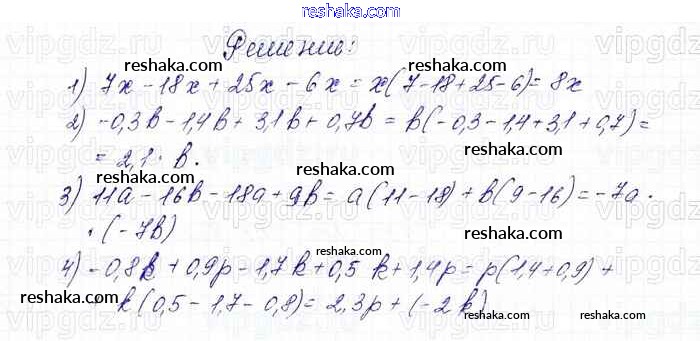 reshaka.com
Решение:
reshaka.com
1) 7x - 18x + 25x - 6x = x(7-18+25-6) = 8x
reshaka.com
2) -0,3b - 1,4b + 3,1b + 0,7b = b(-0,3-1,4+3,1+0,7) =
= 2,1 · b.
reshaka.com
3) 11a - 16b - 18a + 9b = a(11-18) + b(9-16) = -7a ·
· (-7b)
reshaka.com
4) -0,8k + 0,9p - 1,7k + 0,5k + 1,4p = p(1,4+0,9) +
reshaka.com
k(0,5 - 1,7 - 0,8) = 2,3p + (-2k)
reshaka.com
reshaka.com